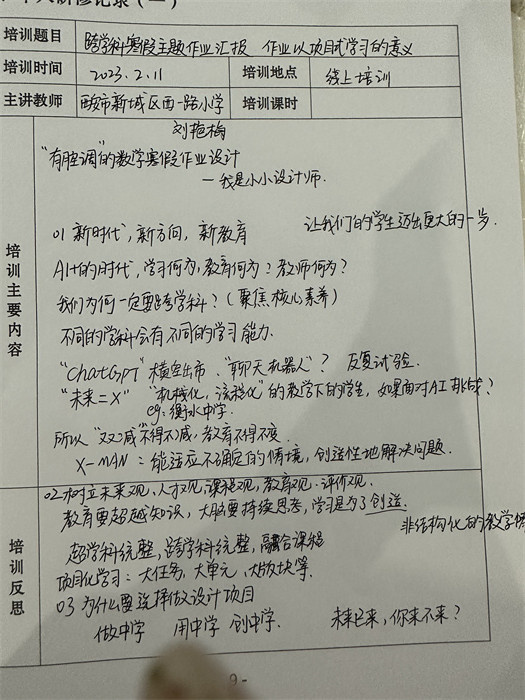 个人研修记录(一)
培训题目 跨学科寒假主题作业汇报 作业以项目式学习的意义
培训时间 2023.2.11 培训地点 线上培训
主讲教师 西安市新城区西一路小学 培训课时
刘艳梅
培训主要内容
"有腔调"的数学寒假作业设计
—我是小小设计师.
01 新时代,新方向,新教育 让我们的学生迈出更大的一步.
AI+的时代,学习何为,教育何为?教师何为?
我们为何一定要跨学科?(聚焦核心素养)
不同的学科会有不同的学习能力.
"ChatGpt"横空出市、"聊天机器人"? 反复试验.
"未来=X" "机械化,流程化"的教学下的学生,如果面对AI挑战?
eg:衡水中学.
所以"双减"不得不减,教育不得不变.
X-MAN:能适应不确定的情境,创造性地解决问题.
培训反思
02 树立未来观、人才观、课程观、教育观、评价观.
教育要超越知识,大脑要持续思考,学习是为了创造.
非结构化的教学情
超学科统整,跨学科统整,融合课程
项目化学习:大任务,大单元,大版块等.
03 为什么要选择做设计项目
做中学 用中学 创中学. 未来已来,你来不来?
-9-